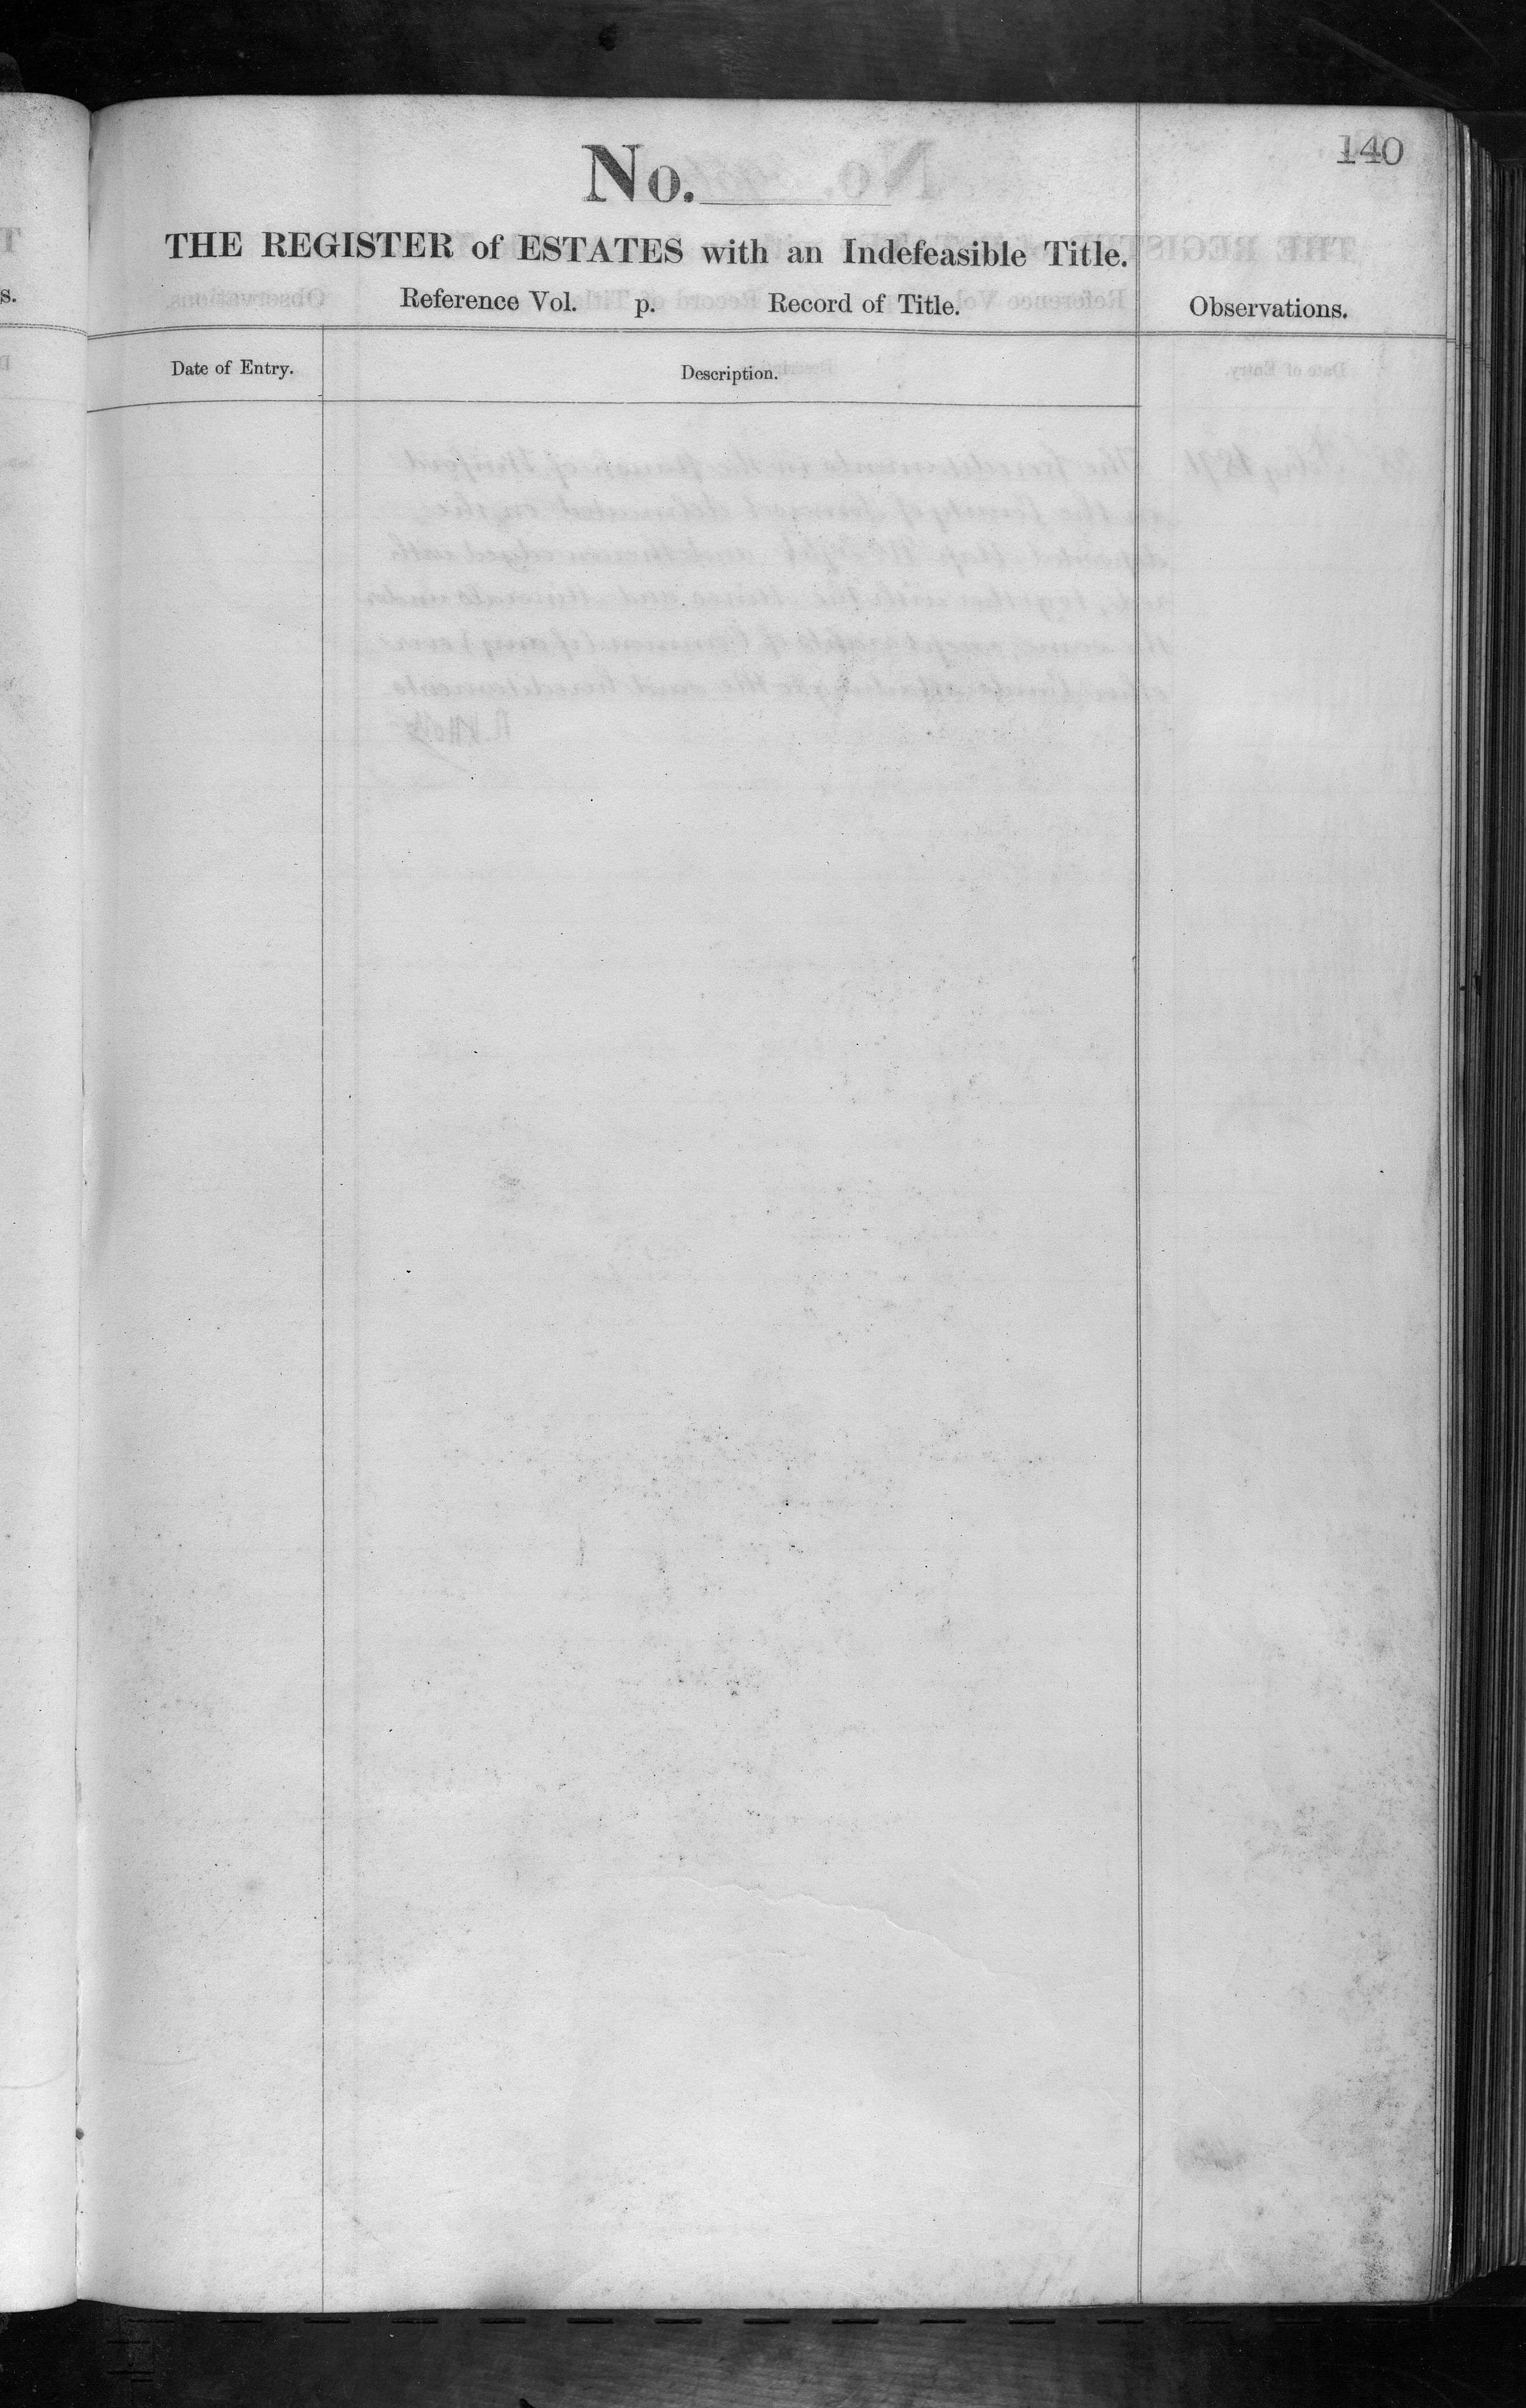 140
No.
THE REGISTER of ESTATES with an Indefeasible Title.
Reference Vol. p. Record of Title.
Observations.
Date of Entry.
Description.